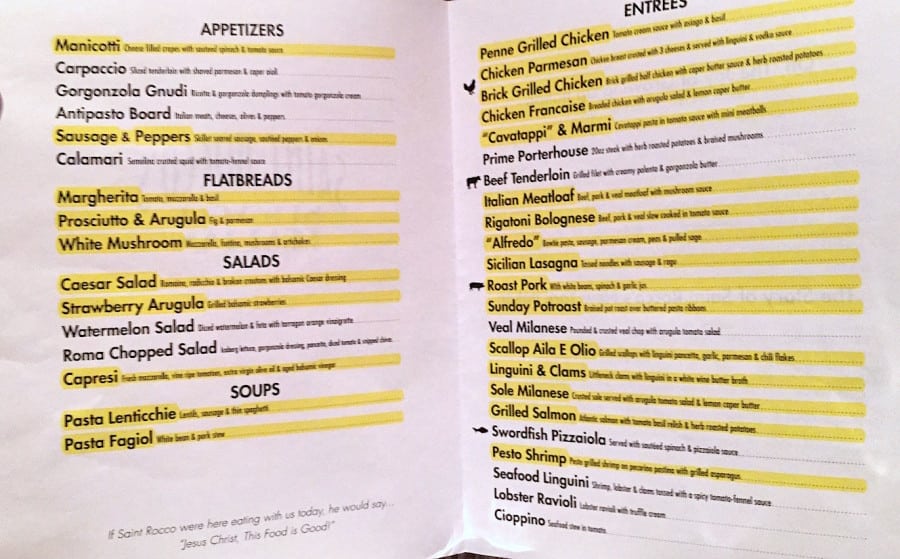 APPETIZERS
Manicotti Cheese filled crepes with sauteed spinach & tomato sauce
Carpaccio Sliced tenderloin with shaved parmesan & caper aioli
Gorgonzola Gnudi Ricotta & gorgonzola dumplings with tomato gorgonzola cream
Antipasto Board Italian meats, cheeses, olives & peppers
Sausage & Peppers Skillet seared sausage, sautéed peppers & onions
Calamari Semolina crusted squid with tomato-fennel sauce
FLATBREADS
Margherita Tomato, mozzarella & basil
Prosciutto & Arugula Fig & parmesan
White Mushroom Mozzarella, fontina, mushrooms & artichokes
SALADS
Caesar Salad Romaine, radicchio & broken croutons with balsamic Caesar dressing
Strawberry Arugula Grilled balsamic strawberries
Watermelon Salad Diced watermelon & feta with tarragon orange vinaigrette
Roma Chopped Salad Iceberg lettuce, gorgonzola dressing, pancetta, diced tomato & snipped chives
Capresi Fresh mozzarella, vine ripe tomatoes, extra virgin olive oil & aged balsamic vinegar
SOUPS
Pasta Lenticchie Lentils, sausage & thin spaghetti
Pasta Fagiol White bean & pork stew
If Saint Rocco were here eating with us today, he would say...
"Jesus Christ, This Food is Good!"
ENTREES
Penne Grilled Chicken Tomato cream sauce with asiago & basil
Chicken Parmesan Chicken breast crusted with 3 cheeses & served with linguini & vodka sauce
Brick Grilled Chicken Brick grilled half chicken with caper butter sauce & herb roasted potatoes
Chicken Francaise Breaded chicken with arugula salad & lemon caper butter
"Cavatappi" & Marmi Cavatappi pasta in tomato sauce with mini meatballs
Prime Porterhouse 20oz steak with herb roasted potatoes & braised mushrooms
Beef Tenderloin Grilled filet with creamy polenta & gorgonzola butter
Italian Meatloaf Beef, pork & veal meatloaf with mushroom sauce
Rigatoni Bolognese Beef, pork & veal slow cooked in tomato sauce
"Alfredo" Bowtie pasta, sausage, parmesan cream, peas & pulled sage
Sicilian Lasagna Tossed noodles with sausage & ragu
Roast Pork With white beans, spinach & garlic jus
Sunday Potroast Braised pot roast over buttered pasta ribbons
Veal Milanese Pounded & crusted veal chop with arugula tomato salad
Scallop Aila E Olio Grilled scallops with linguini pancetta, garlic, parmesan & chili flakes
Linguini & Clams Littleneck clams with linguini in a white wine butter broth
Sole Milanese Crusted sole served with arugula tomato salad & lemon caper butter
Grilled Salmon Atlantic salmon with tomato basil relish & herb roasted potatoes
Swordfish Pizzaiola Served with sautéed spinach & pizzaiola sauce
Pesto Shrimp Pesto grilled shrimp on pecorino pastina with grilled asparagus
Seafood Linguini Shrimp, lobster & clams tossed with a spicy tomato-fennel sauce
Lobster Ravioli Lobster ravioli with truffle cream
Cioppino Seafood stew in tomato